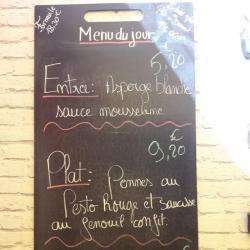 Formule
18.20€
Menu du jour
5,20
€
Entrée: Asperge blanche
sauce mousseline
€
9,20
Plat: Pennes au
Pesto Rouge et saucisse
au fenouil confit.